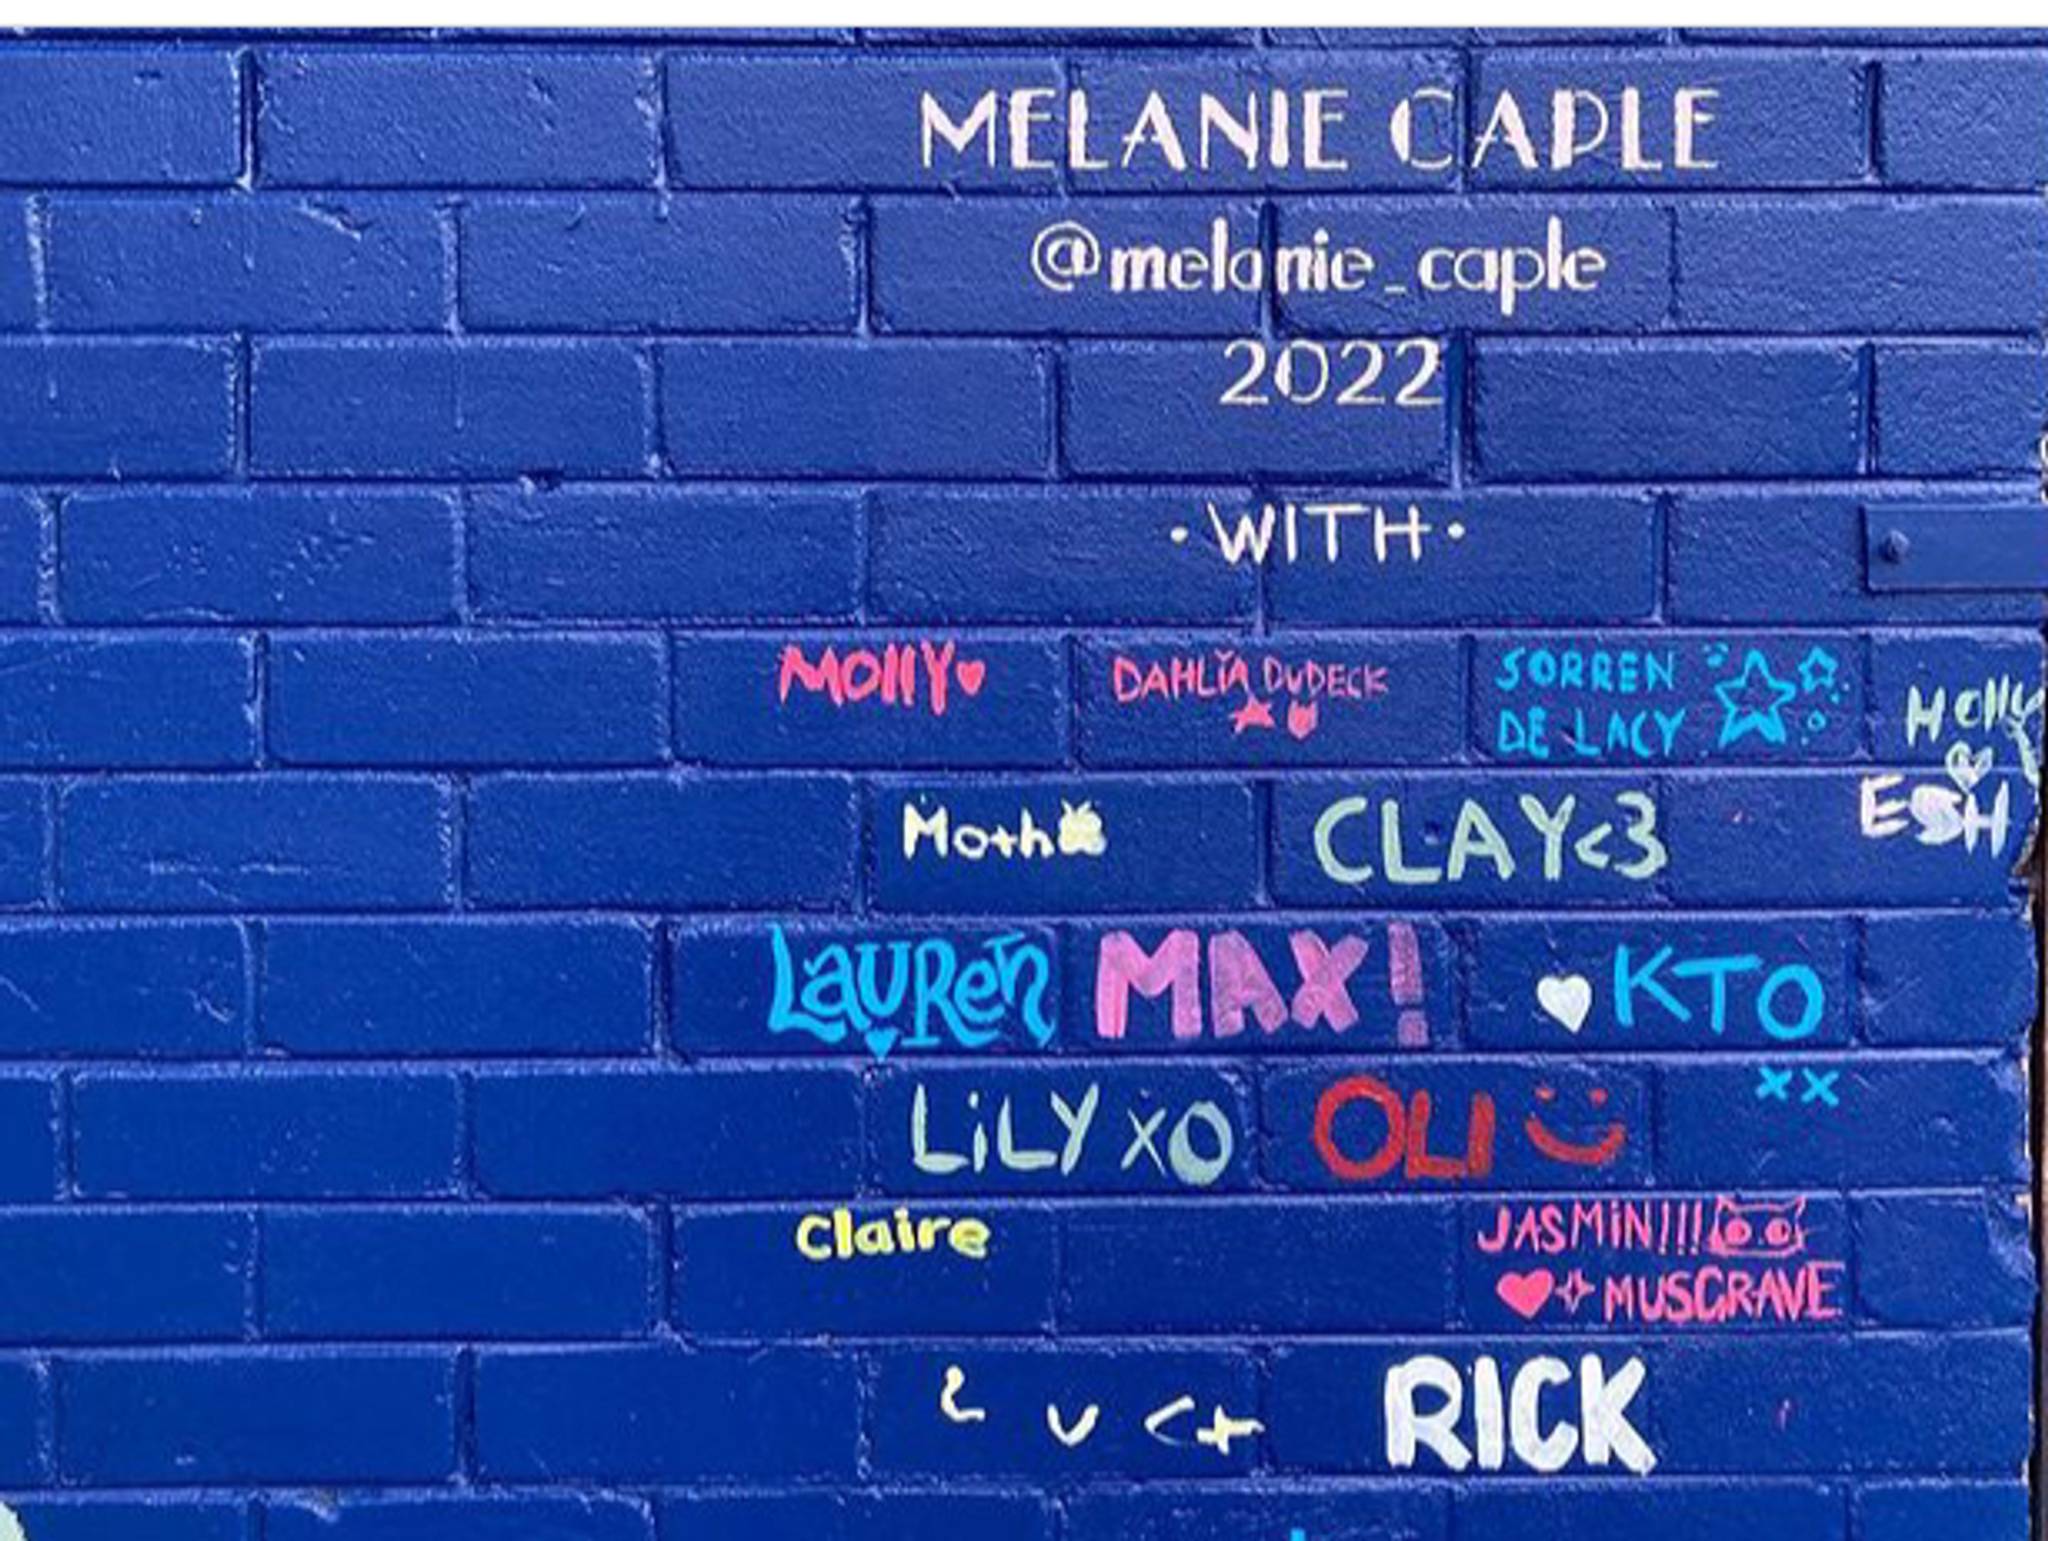 MELANIE CAPLE
@melanie_caple
2022
·WITH·
MOllY DAHLIA DUDECK SORREN DE LACY Holly
Moth CLAY<3 ESH
LauRen MAX! KTO
xx
LiLY XO OLI
Claire JASMiN!!!
MUSGRAVE
RICK